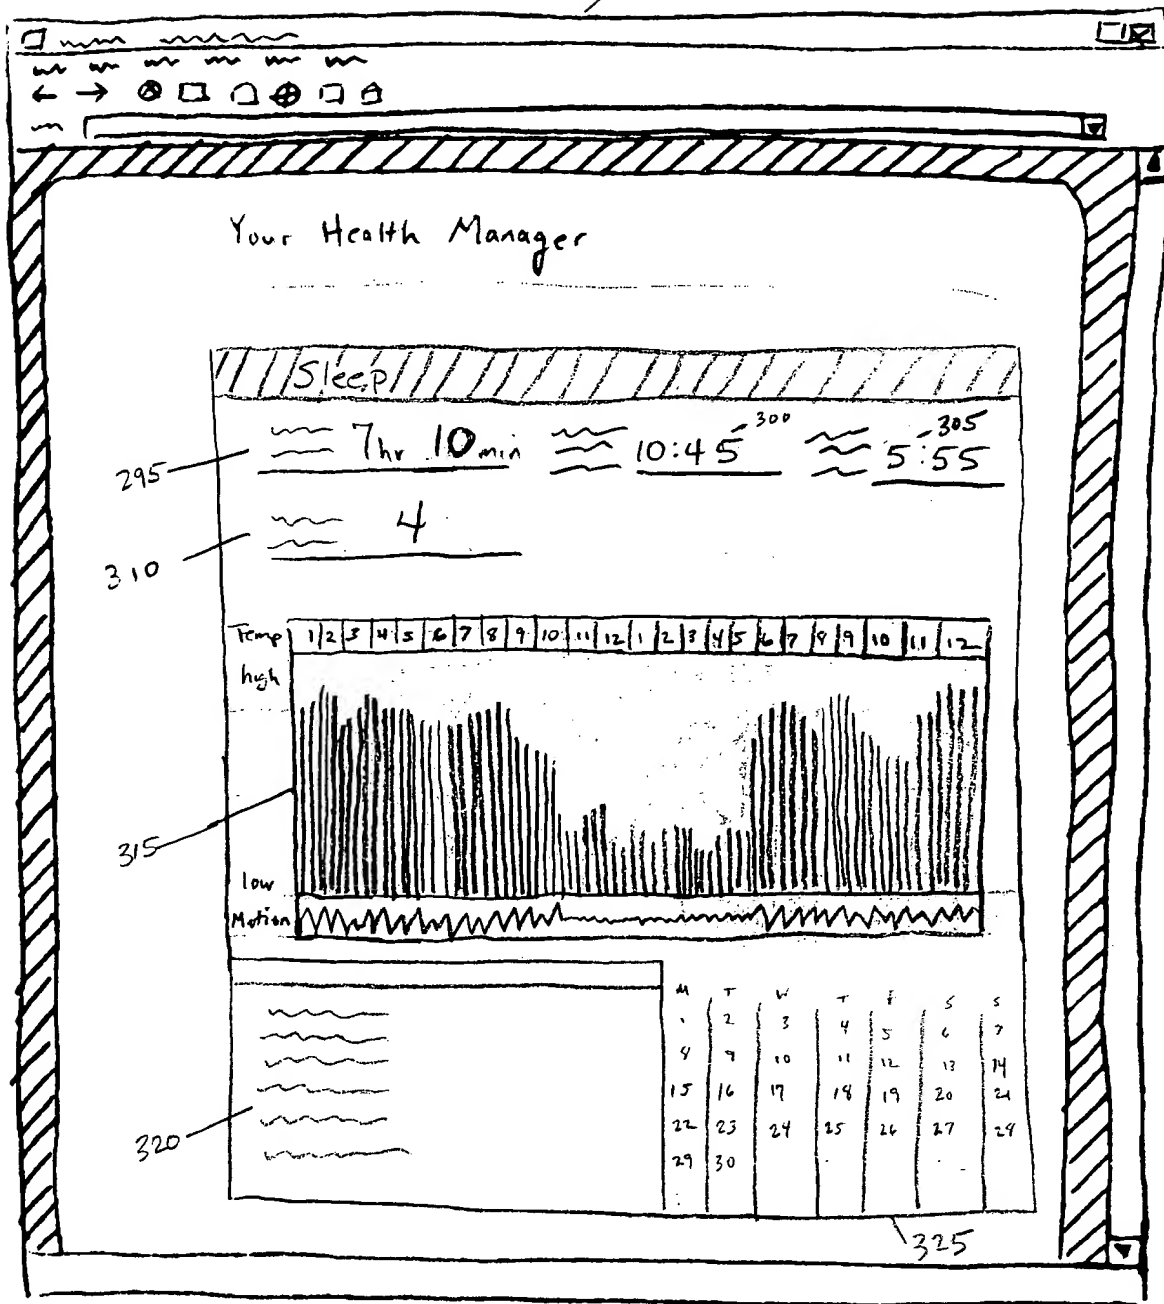 Your Health Manager
Sleep
300
305
7hr 10min 10:45 5:55
295
4
310
Temp 1 2 3 4 5 6 7 8 9 10 11 12 1 2 3 4 5 6 7 8 9 10 11 12
high
315
low
Motion
M T W T F S S
1 2 3 4 5 6 7
8 9 10 11 12 13 14
15 16 17 18 19 20 21
22 23 24 25 26 27 28
320
29 30
325